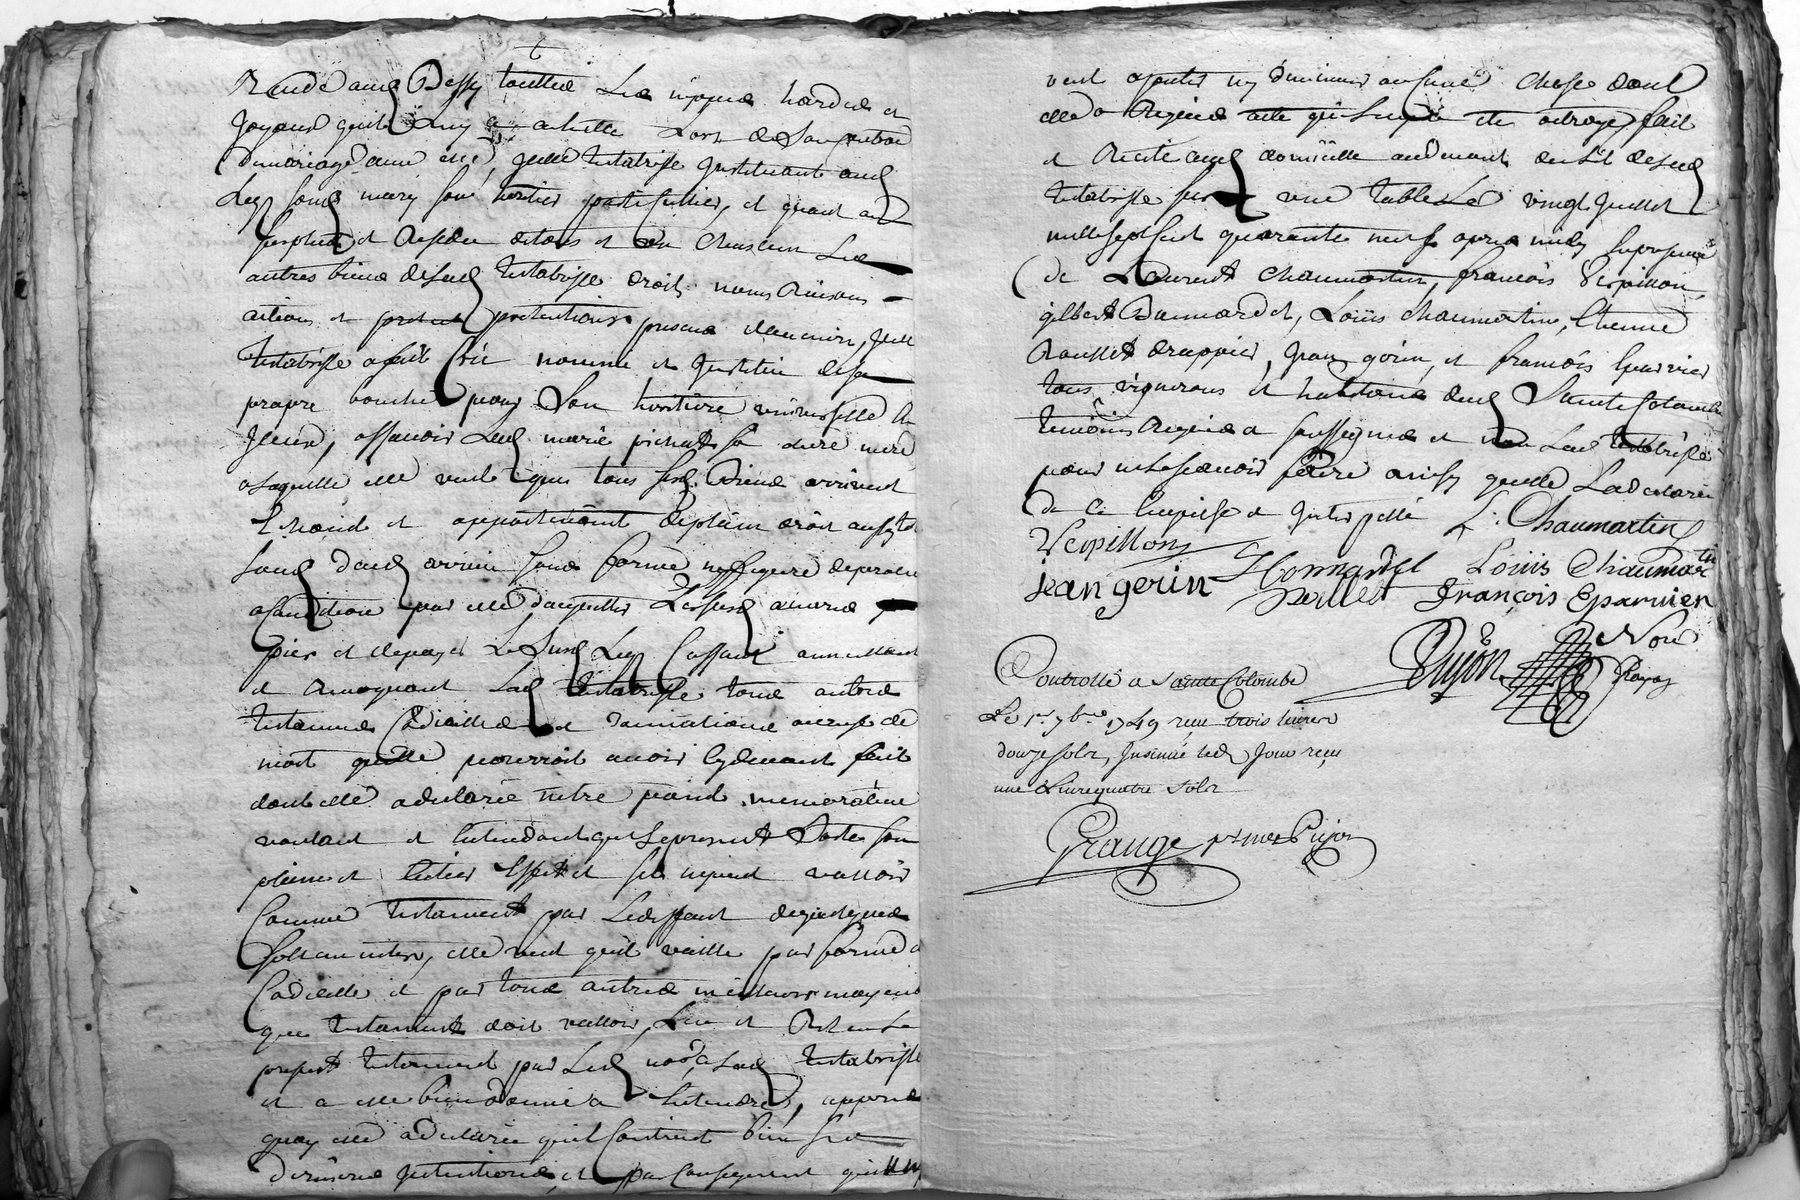 Rende aud Dessy touttes Les nippes hardes et
joyaux quil Luy a achetté Lors de Son contrat
de mariage avec elle, Jcelle testatrisse Jnstituant aud
Leg sond mary son heritier particullier, et quant au
surplus et Residu de tous et un Chascun Les
autres biens de lad testatrisse droits noms Raisons
actions et pretentions presens et advenir, Jcelle
testatrisse a fait Créé nommé et Jnstitué de sa
propre bouche pour Son heritiere universelle
Jcelle, assavoir Lad marie pichat sa chere mere
a Laquelle elle veut que tous sesd Biens arrivent
et appartiennent de plain droit aussytot
Sond deces arrivé sans forme ny figure de proces
a Condition par elle d'acquitter
et de payer Le Susd Leg Cassant annullant
et Revoquant Lad testatrisse tous autres
testamens Codicilles et donnations a cause de
mort quelle pourroit avoir cydevant fait
dont elle a declaré n'etre point memorative
voulant et Entendant que Le present Sorte son
plein et Entier Effet et sil ne peut valloir
Comme testament par Le deffaut de quelques
sollemnites, elle veut quil vaille par forme de
Codicille et par tous autres meilleurs moyens
que testament doit valloir, Lu et Releu Le
present testament par Led no.re a Lad testatrisse
et a elle bien donné a Entendre, apprès
quoy elle a declaré quil Contient bien ses
dernieres Jntentions, et par Consequent quelle ny
veut ajouter ny diminuer aucune Chose dont
elle a Requis acte qui Luy a ete octroyé, fait
et Recité aud domicille au devant du lit de lad
testatrisse sur une table Le vingt Juillet
mille sept Cent quarante neuf apres midy En presence
de Laurent Chaumartin, francois Verpillon,
gilbert Bonnardet, Loüis Chaumartin, Etienne
Roullet drappier, Jean gerin, et francois Eparvier
tous vignerons et habitans dud Sainte Colombe
temoins Requis et soussignes et non Lad testatrisse
pour ne Scavoir faire ainsy quelle La declaré
de Ce Enquise et Jnterpellé L. Chaumartin
Verpillon
Bonnardel Loüis Chaumartin
jean gerin Roullet François Eparvier
Pujon No.re
Royal
Controllé a Sainte Colombe
Le 1.er 7.bre 1749 reçu trois livres
douze sols, Jnsinué led Jour reçu
une Livre quatre Sols
Grange p.r mr Pujon